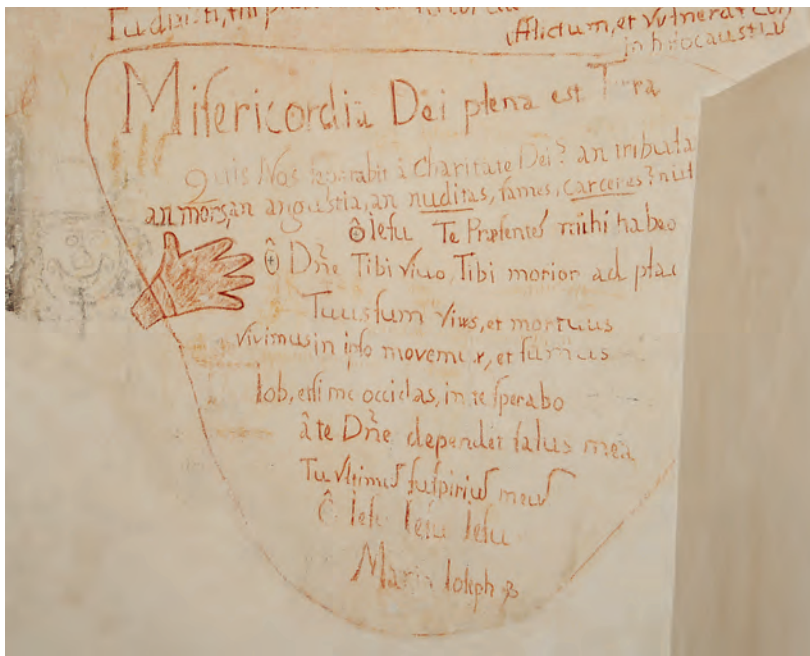 afflictum, et Vulneratum
in holocaustu
Misericordia Dei plena est T ra
Quis Nos separabit à Charitate Dei? an tributa
an mors, an angustia, an nuditas, fames, carceres? niſi
ô Iesu Te Præsentē mihi habeo
ô Dñe Tibi Vivo, Tibi morior ad
Tuus sum Vivꝰ, et mortuus
vivimus in ipso movemur, et sumus
Iob, etsi me occidas, in te sperabo
à te Dñe dependet salus mea
Tu Vltimus suspirius meus
Ô Iesu Iesu Iesu
Maria Ioseph